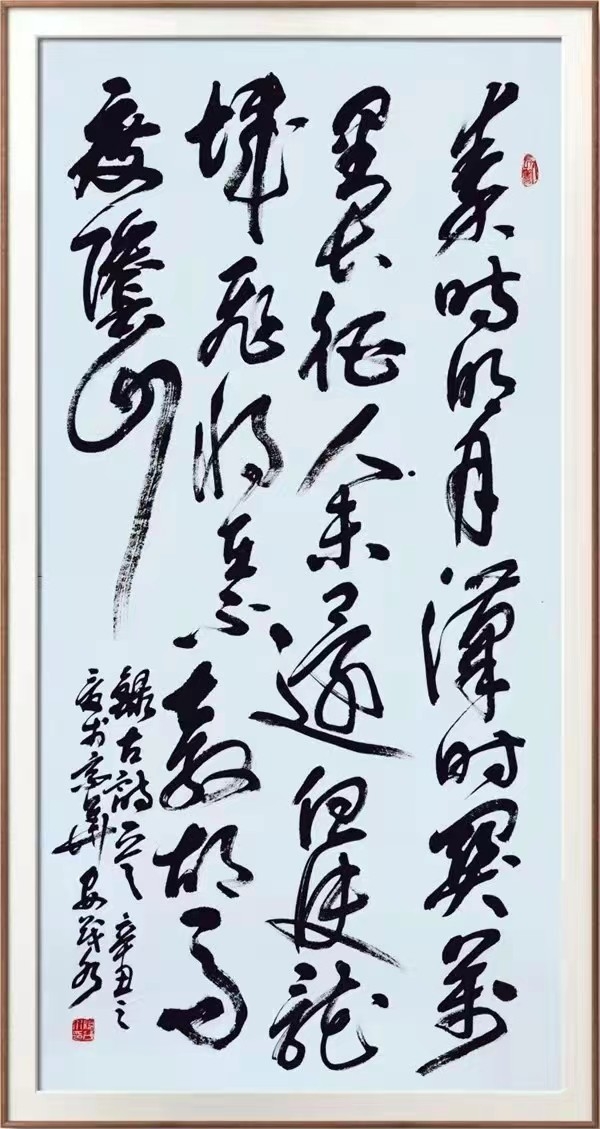 秦時明月漢時關萬
里長征人未還但使龍
城飛將在不教胡馬
度陰山
錄古詩一首 辛丑之
夏於京華 安茂